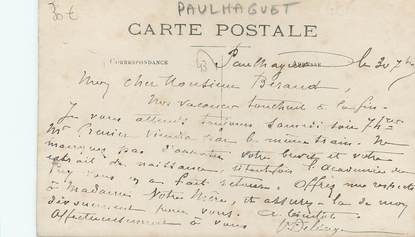 30€
PAULHAGUET
CARTE POSTALE
CORRESPONDANCE
Paulhaguet le 30 7bre
Mon cher Monsieur Béraud,
Nos vacances touchent à la fin.
Je vous attends samedi soir 7h
Mr viendra par le même train. Ne
manquez pas d' votre livret et votre
extrait de naissance, l'Académie de
vous a fait retour. Offrez mes respects
à Madame Votre Mère, et assurez-la de mon
dévouement pour vous. A bientôt
Affectueusement à vous